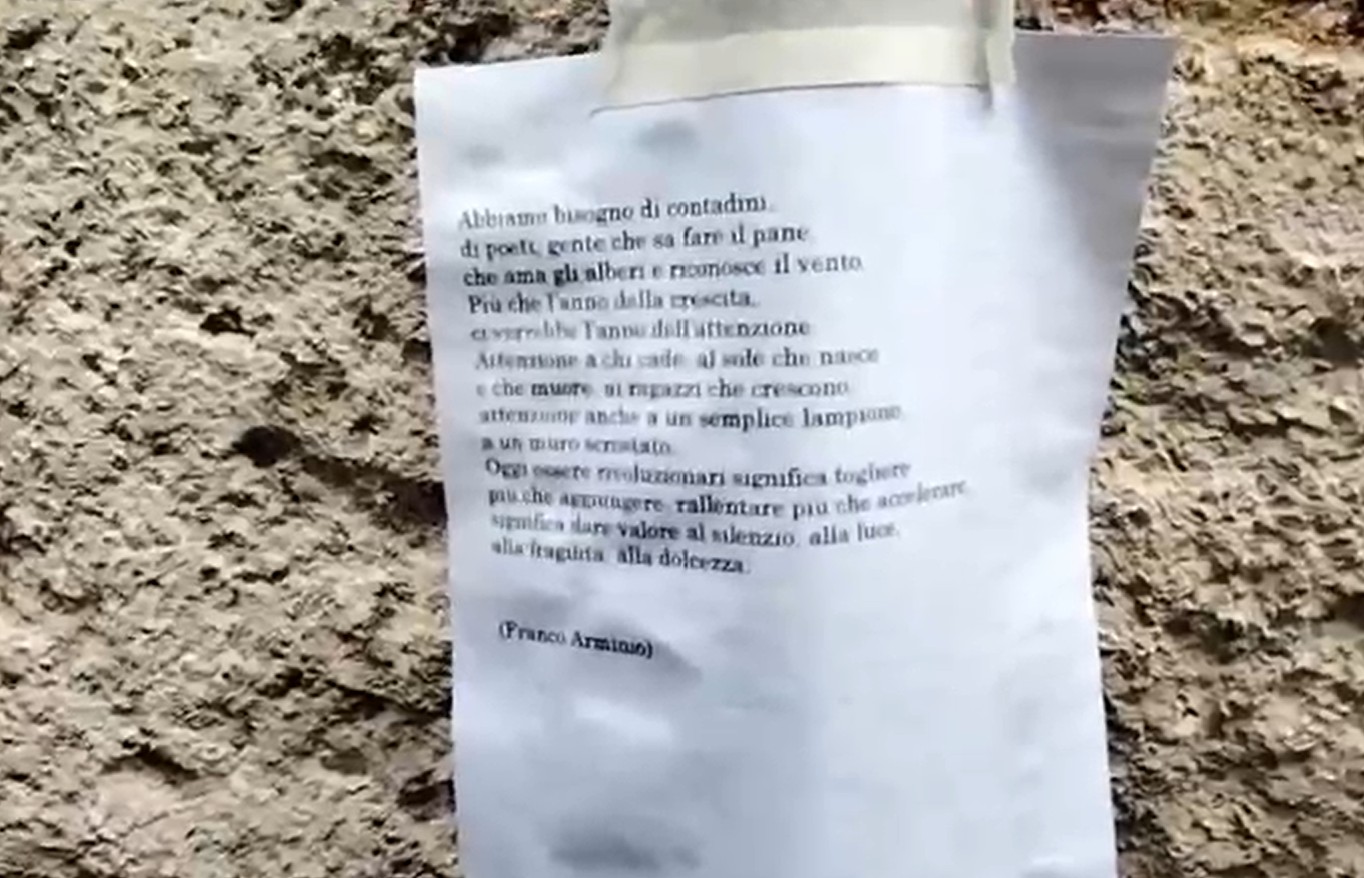 Abbiamo bisogno di contadini,
di poeti, gente che sa fare il pane,
che ama gli alberi e riconosce il vento.
Più che l'anno della crescita,
ci vorrebbe l'anno dell'attenzione.
Attenzione a chi cade, al sole che nasce
e che muore, ai ragazzi che crescono,
attenzione anche a un semplice lampione,
a un muro scrostato.
Oggi essere rivoluzionari significa togliere
più che aggiungere, rallentare più che accelerare,
significa dare valore al silenzio, alla luce,
alla fragilità, alla dolcezza.
(Franco Arminio)